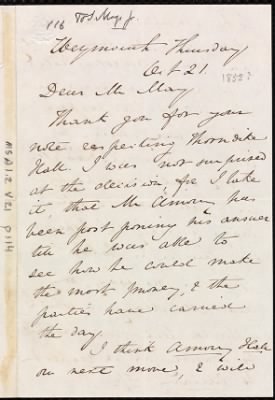 116 To S. May Jr.
Weymouth Thursday
Oct 21. 1852?
Dear Mr May
Thank you for your
note respecting Thorndike
Hall. I was not surprised
at the decision, for I take
it, that Mr Amory has
been postponing his answer
till he was able to
see how he could make
the most money, & the
parties have carried
the day.
I think Amory Hall
our next move, & will
MS A.1.2 V.21 p.114